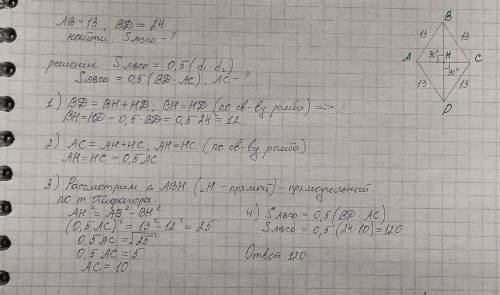 AB = 13, BD = 24
найти: SABCD - ?
решение: SABCD = 0,5 (d1 d2)
SABCD = 0,5 (BD · AC), AC - ?
1) BD = BH + HD, BH = HD (по св-ву ромба) =>
BH = HD = 0,5 · BD = 0,5 · 24 = 12
2) AC = AH + HC, AH = HC (по св-ву ромба)
AH = HC = 0,5 AC
3) Рассмотрим △ ABH (∠H - прямой) - прямоугольный
по т. Пифагора
AH² = AB² - BH²
(0,5 AC)² = 13² - 12² = 25
0,5 AC = √25
0,5 AC = 5
AC = 10
4) SABCD = 0,5 (BD · AC)
SABCD = 0,5 (24 · 10) = 120
Ответ 120
B
13
13
A
90°
H
C
90°
13
13
D